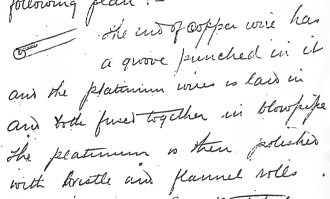 following plan : —
The end of Copper wire has
a grove punched in it
and the platinum wires is laid in
and both fused together in blowpipe
The platinum is then polished
with bristle and flannel rolls .